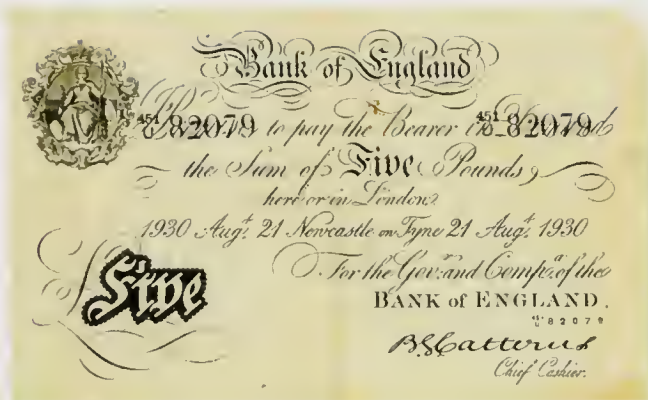 Bank of England
451/U 82079 to pay the Bearer 451/U 82079
the Sum of Five Pounds
here or in London
1930 Augt. 21 Newcastle on Tyne 21 Augt. 1930
For the Govr. and Compa. of the
BANK of ENGLAND.
82079
Five
B G Catterns
Chief Cashier.